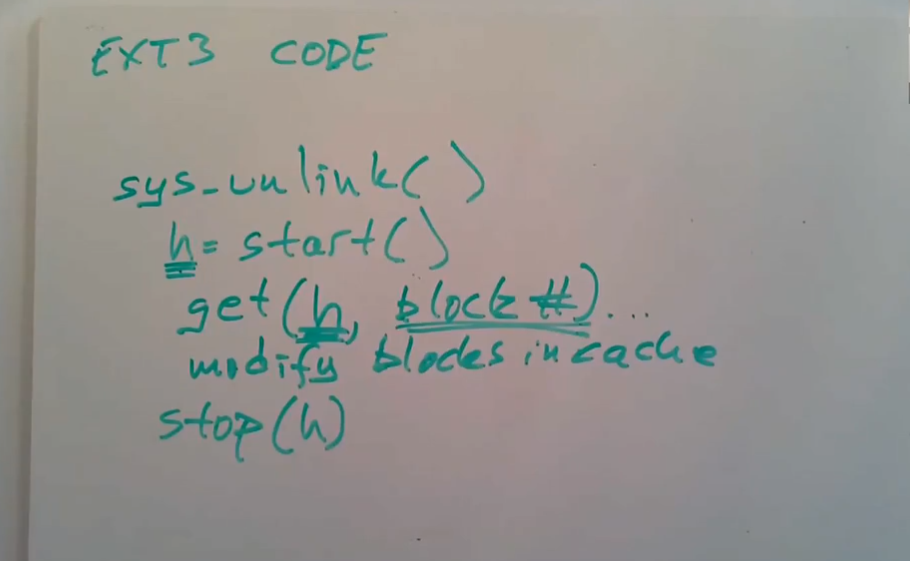 EXT3 CODE
sys_unlink()
h = start()
get(h, block #)...
modify blocks in cache
stop(h)